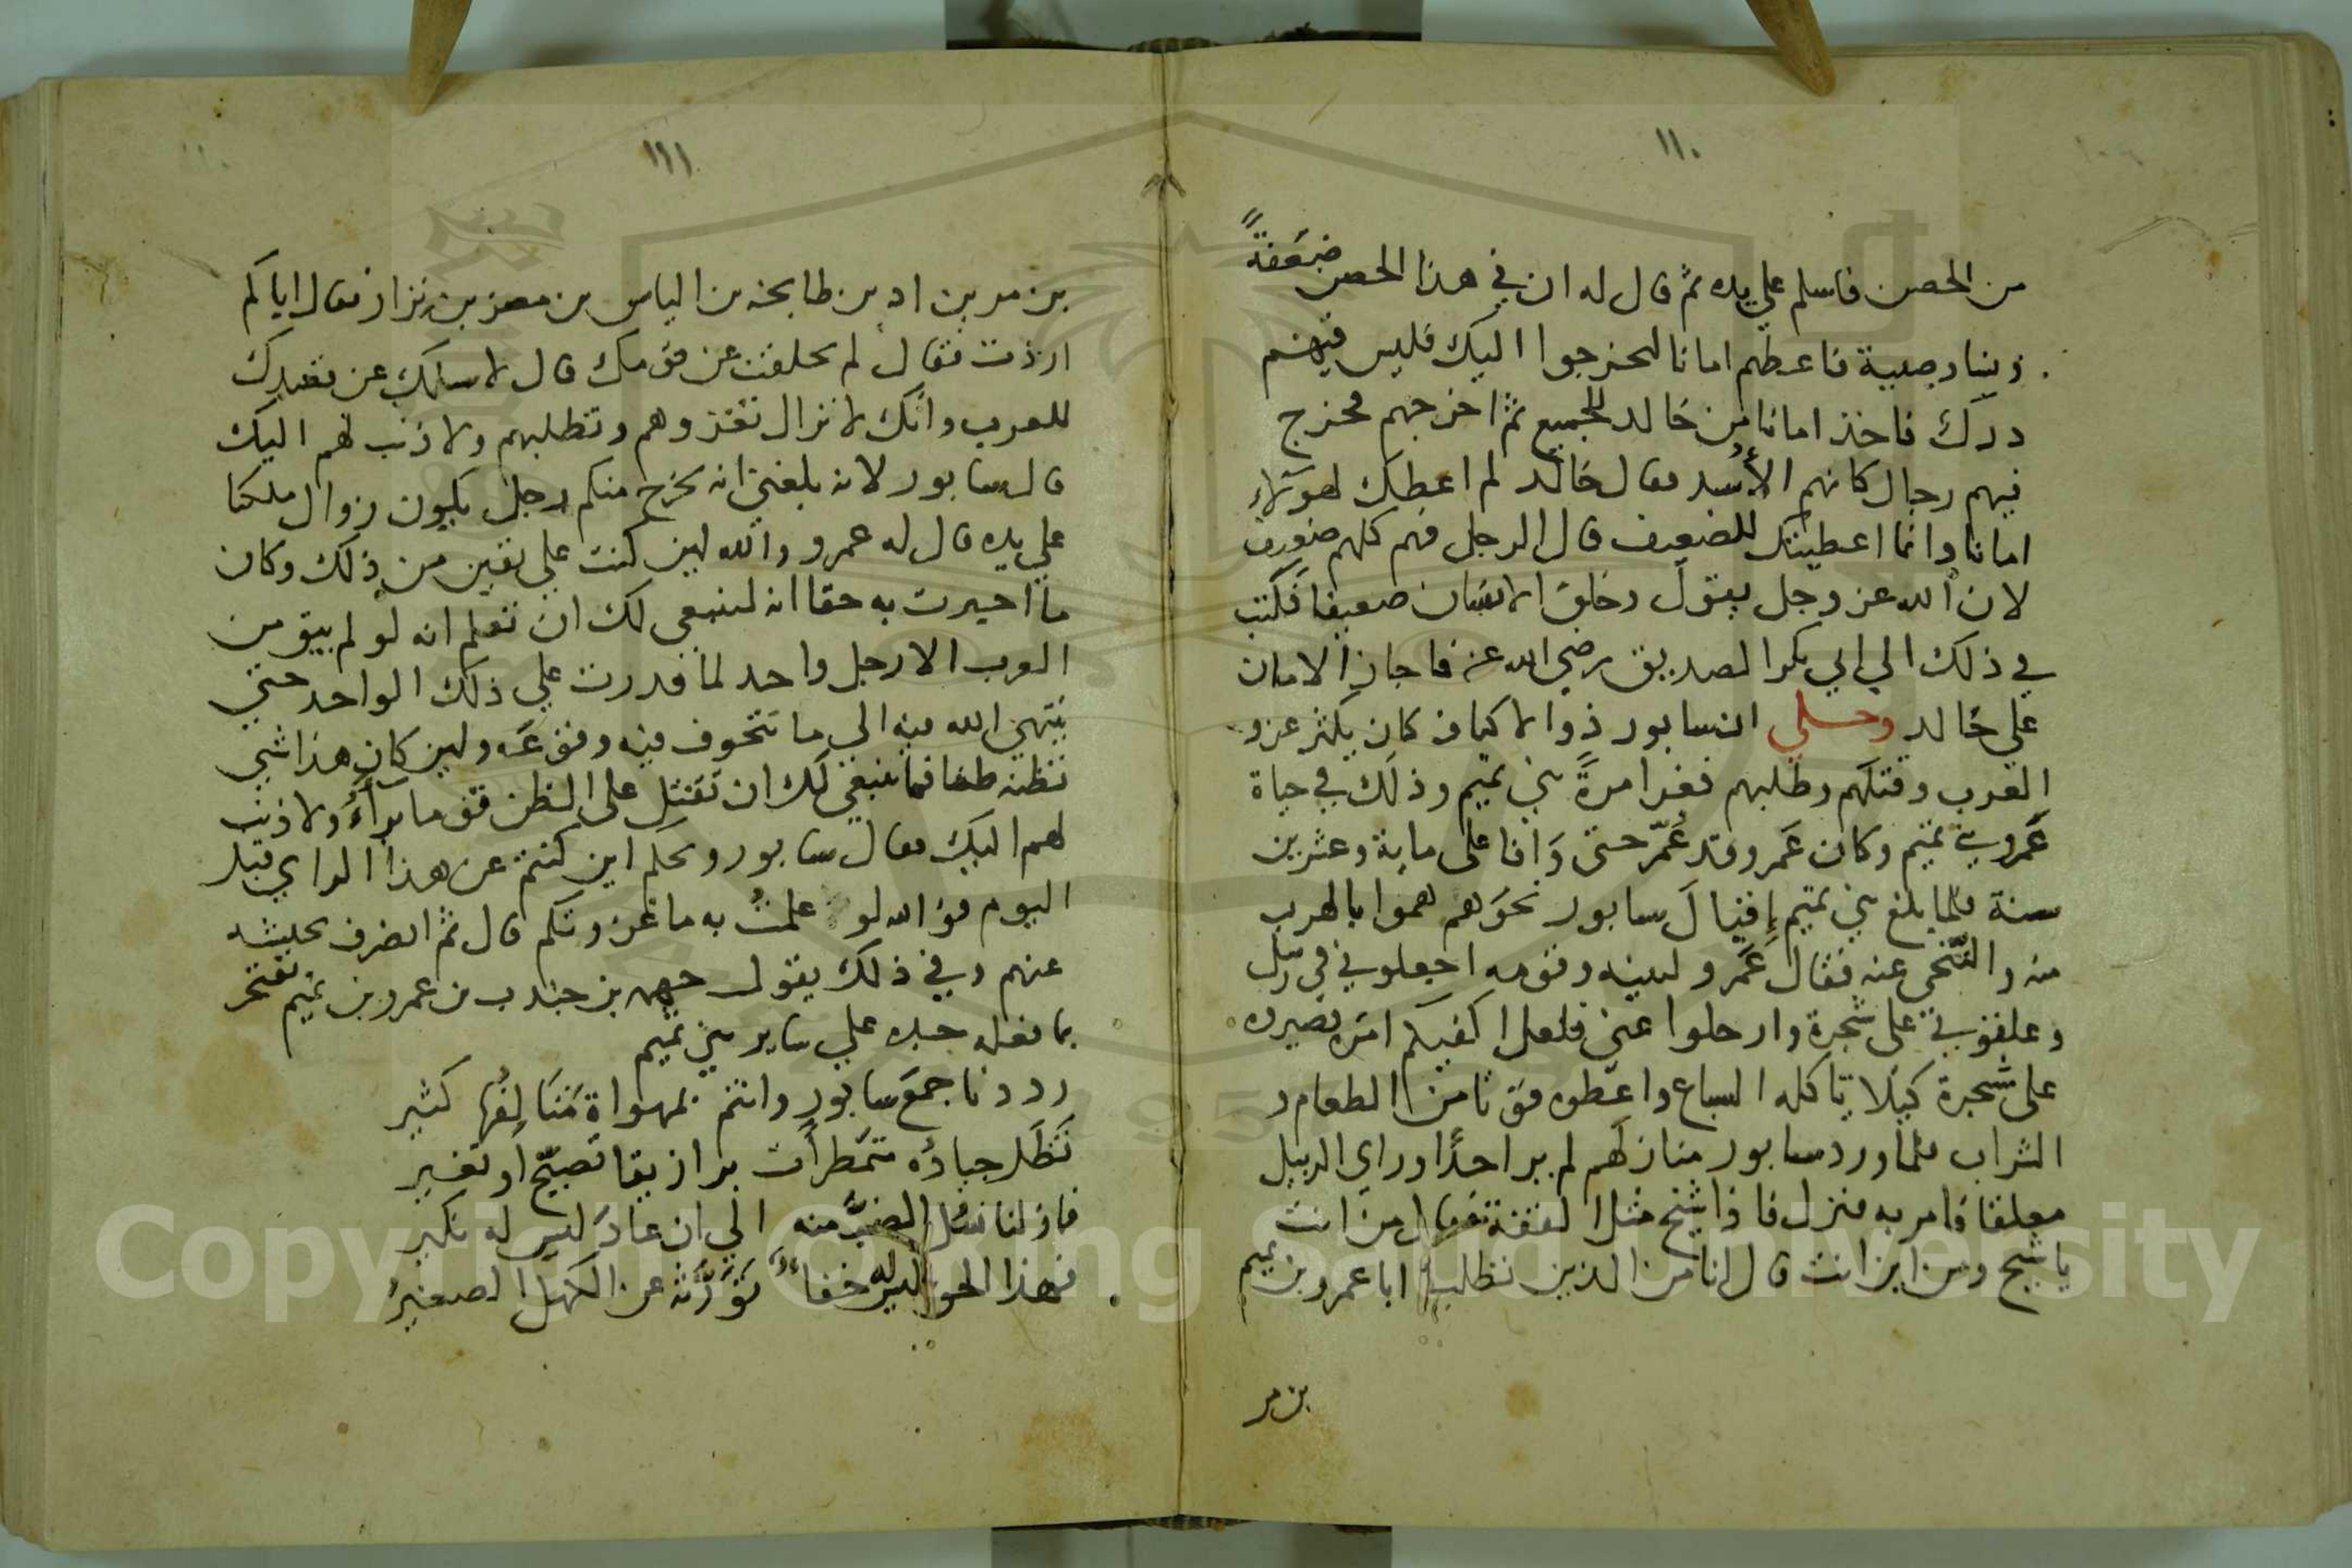 ١١٠
من الحصن فاسلم علي يده ثم قال له ان في هذا الحصن ضعفةً
وصبية فاعطهم امانا ليخرجوا اليك فليس فيهم
درك فاخذ امانا من خالد للجميع ثم اخرجهم فخرج
فيهم رجال كانهم الأُسد فقال خالد لم اعطك لهولاء
امانا وانما اعطيتك للضعيف قال الرجل فهم كلهم ضعيف
لان الله عز وجل يقول وخلق الانسان ضعيفا فكتب
في ذلك الي ابي بكر الصديق رضي الله عنه فاجاز الامان
علي خالد وحكي ان سابور ذو الاكتاف كان يكثر غزو
العرب وقتلهم وطلبهم فغزا مرةً بني تميم وذلك في حياة
عَمرو بن تميم وكان عَمرو قد عُمّر حتى وافا على ماية وعشرين
سنة فلما بلغ بني تميم إقبال سابور نحوهم هموا بالهرب
منه والتنحي عنه فقال عَمرو لبنيه وقومه اجعلوني في زبّيل
وعلقوني على شجرة وارحلوا عني فلعلي اكفيكم امره فصيروه
على شجرة كيلا تاكله السباع واعطوه قوتا من الطعام و
الشراب فلما ورد سابور منازلهم لم ير احدًا وراي الزبيل
معلقا فامر به فنزل فاذا شيخ مثل القفة فقال من انت
يا شيخ ومن اين انت قال انا من الذين تطلب انا عمرو بن تميم
بن مر
١١١
بن مر بن اد بن طابخه بن الياس بن مضر بن نزار فقال اياكم
اردت فقال لم تخلفت عن قومك قال لاسالك عن
للعرب وانك لا تزال تغزوهم وتطلبهم ولا ذنب لهم اليك
قال سابور لانه بلغني انه يخرج منكم رجل يكون زوال ملكنا
علي يده قال له عمرو والله لين كنت علي يقين من ذلك وكان
ما اخبرت به حقا انه لينبغي لك ان تعلم انه لو لم يبق من
العرب الا رجل واحد لما قدرت علي ذلك الواحد حتي
ينتهي الله فيه الي ما تتخوف فيه وقوعه ولين كان هذا شي
تظنه ظنا فما ينبغي لك ان تقتل على الظن قوما برآءً ولا ذنب
لهم اليك فقال سابور ويحكم اين كنتم عن هذا الراي قبل
اليوم فوالله لو علمتُ به ما غزوتكم قال ثم انصرف بجيشه
عنهم وفي ذلك يقول بن جندب بن عمرو بن تميم يفتخر
بما فعله جده علي ساير بني تميم
رددنا جمع سابور وانتم بمهواة مَتَالِفُها كثير
تظل جياده متمطرات تصبّح او تغير
الي ان عاد ليس له نكير
فهذا ليس له خفاء تورّثه عن الكهل الصغير